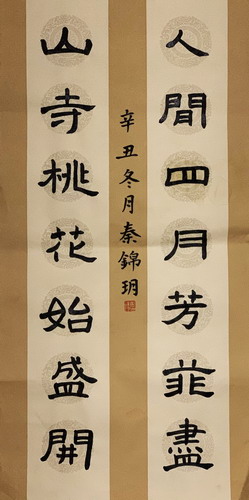 人間四月芳菲盡
山寺桃花始盛開
辛丑冬月秦錦玥